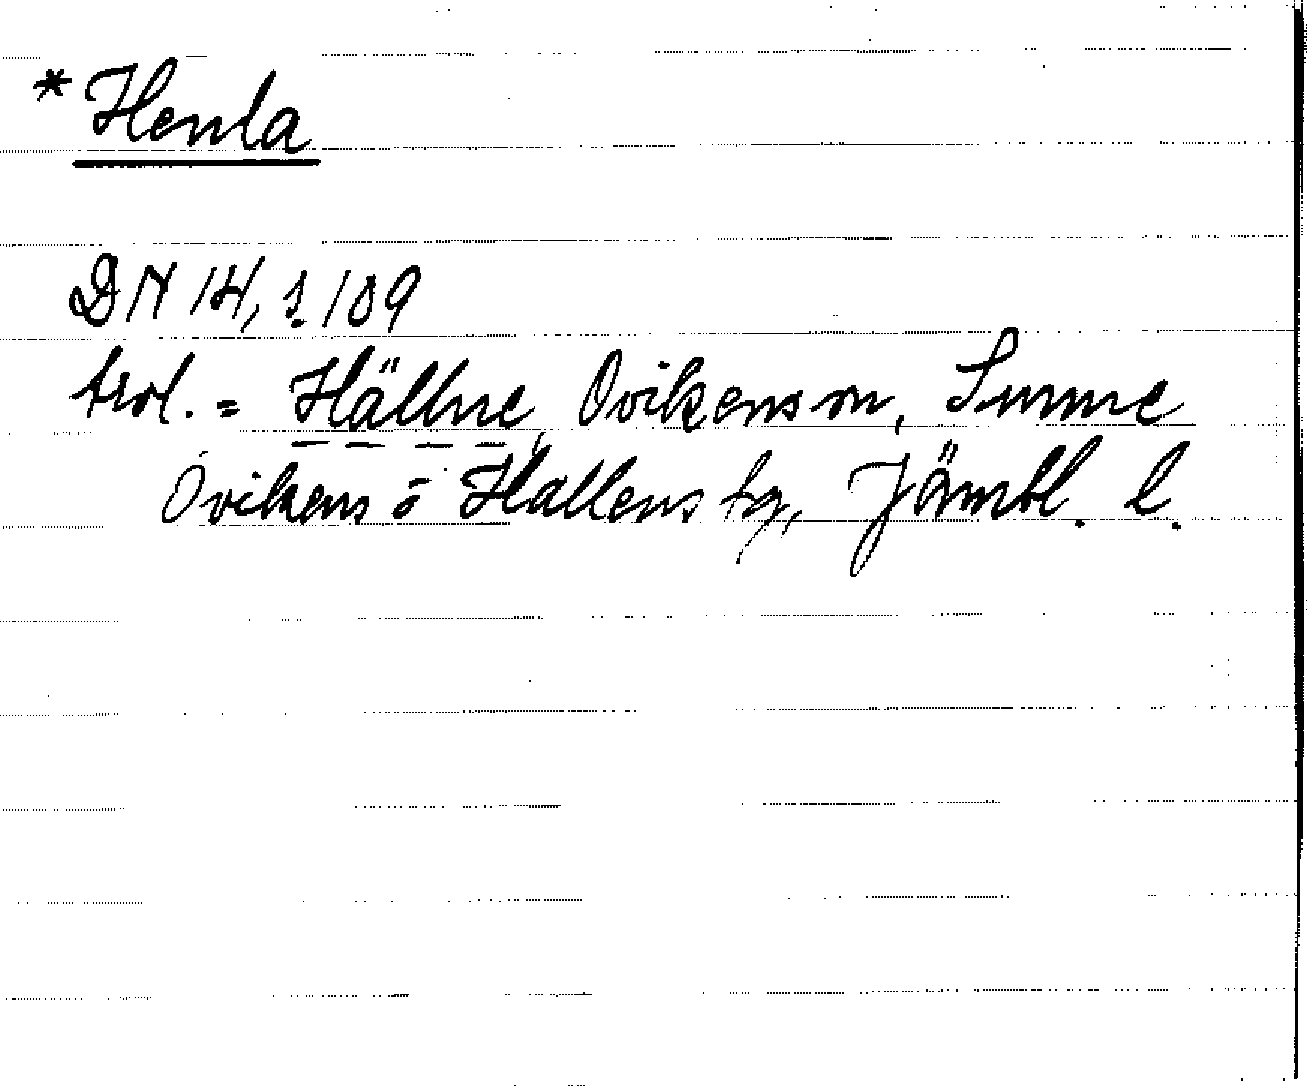 *Henla
DN 14, 1 109
trol. = Hällne, Ovikens sn, Sunne
Ovikens o Hallens tg, Jämtl. l.